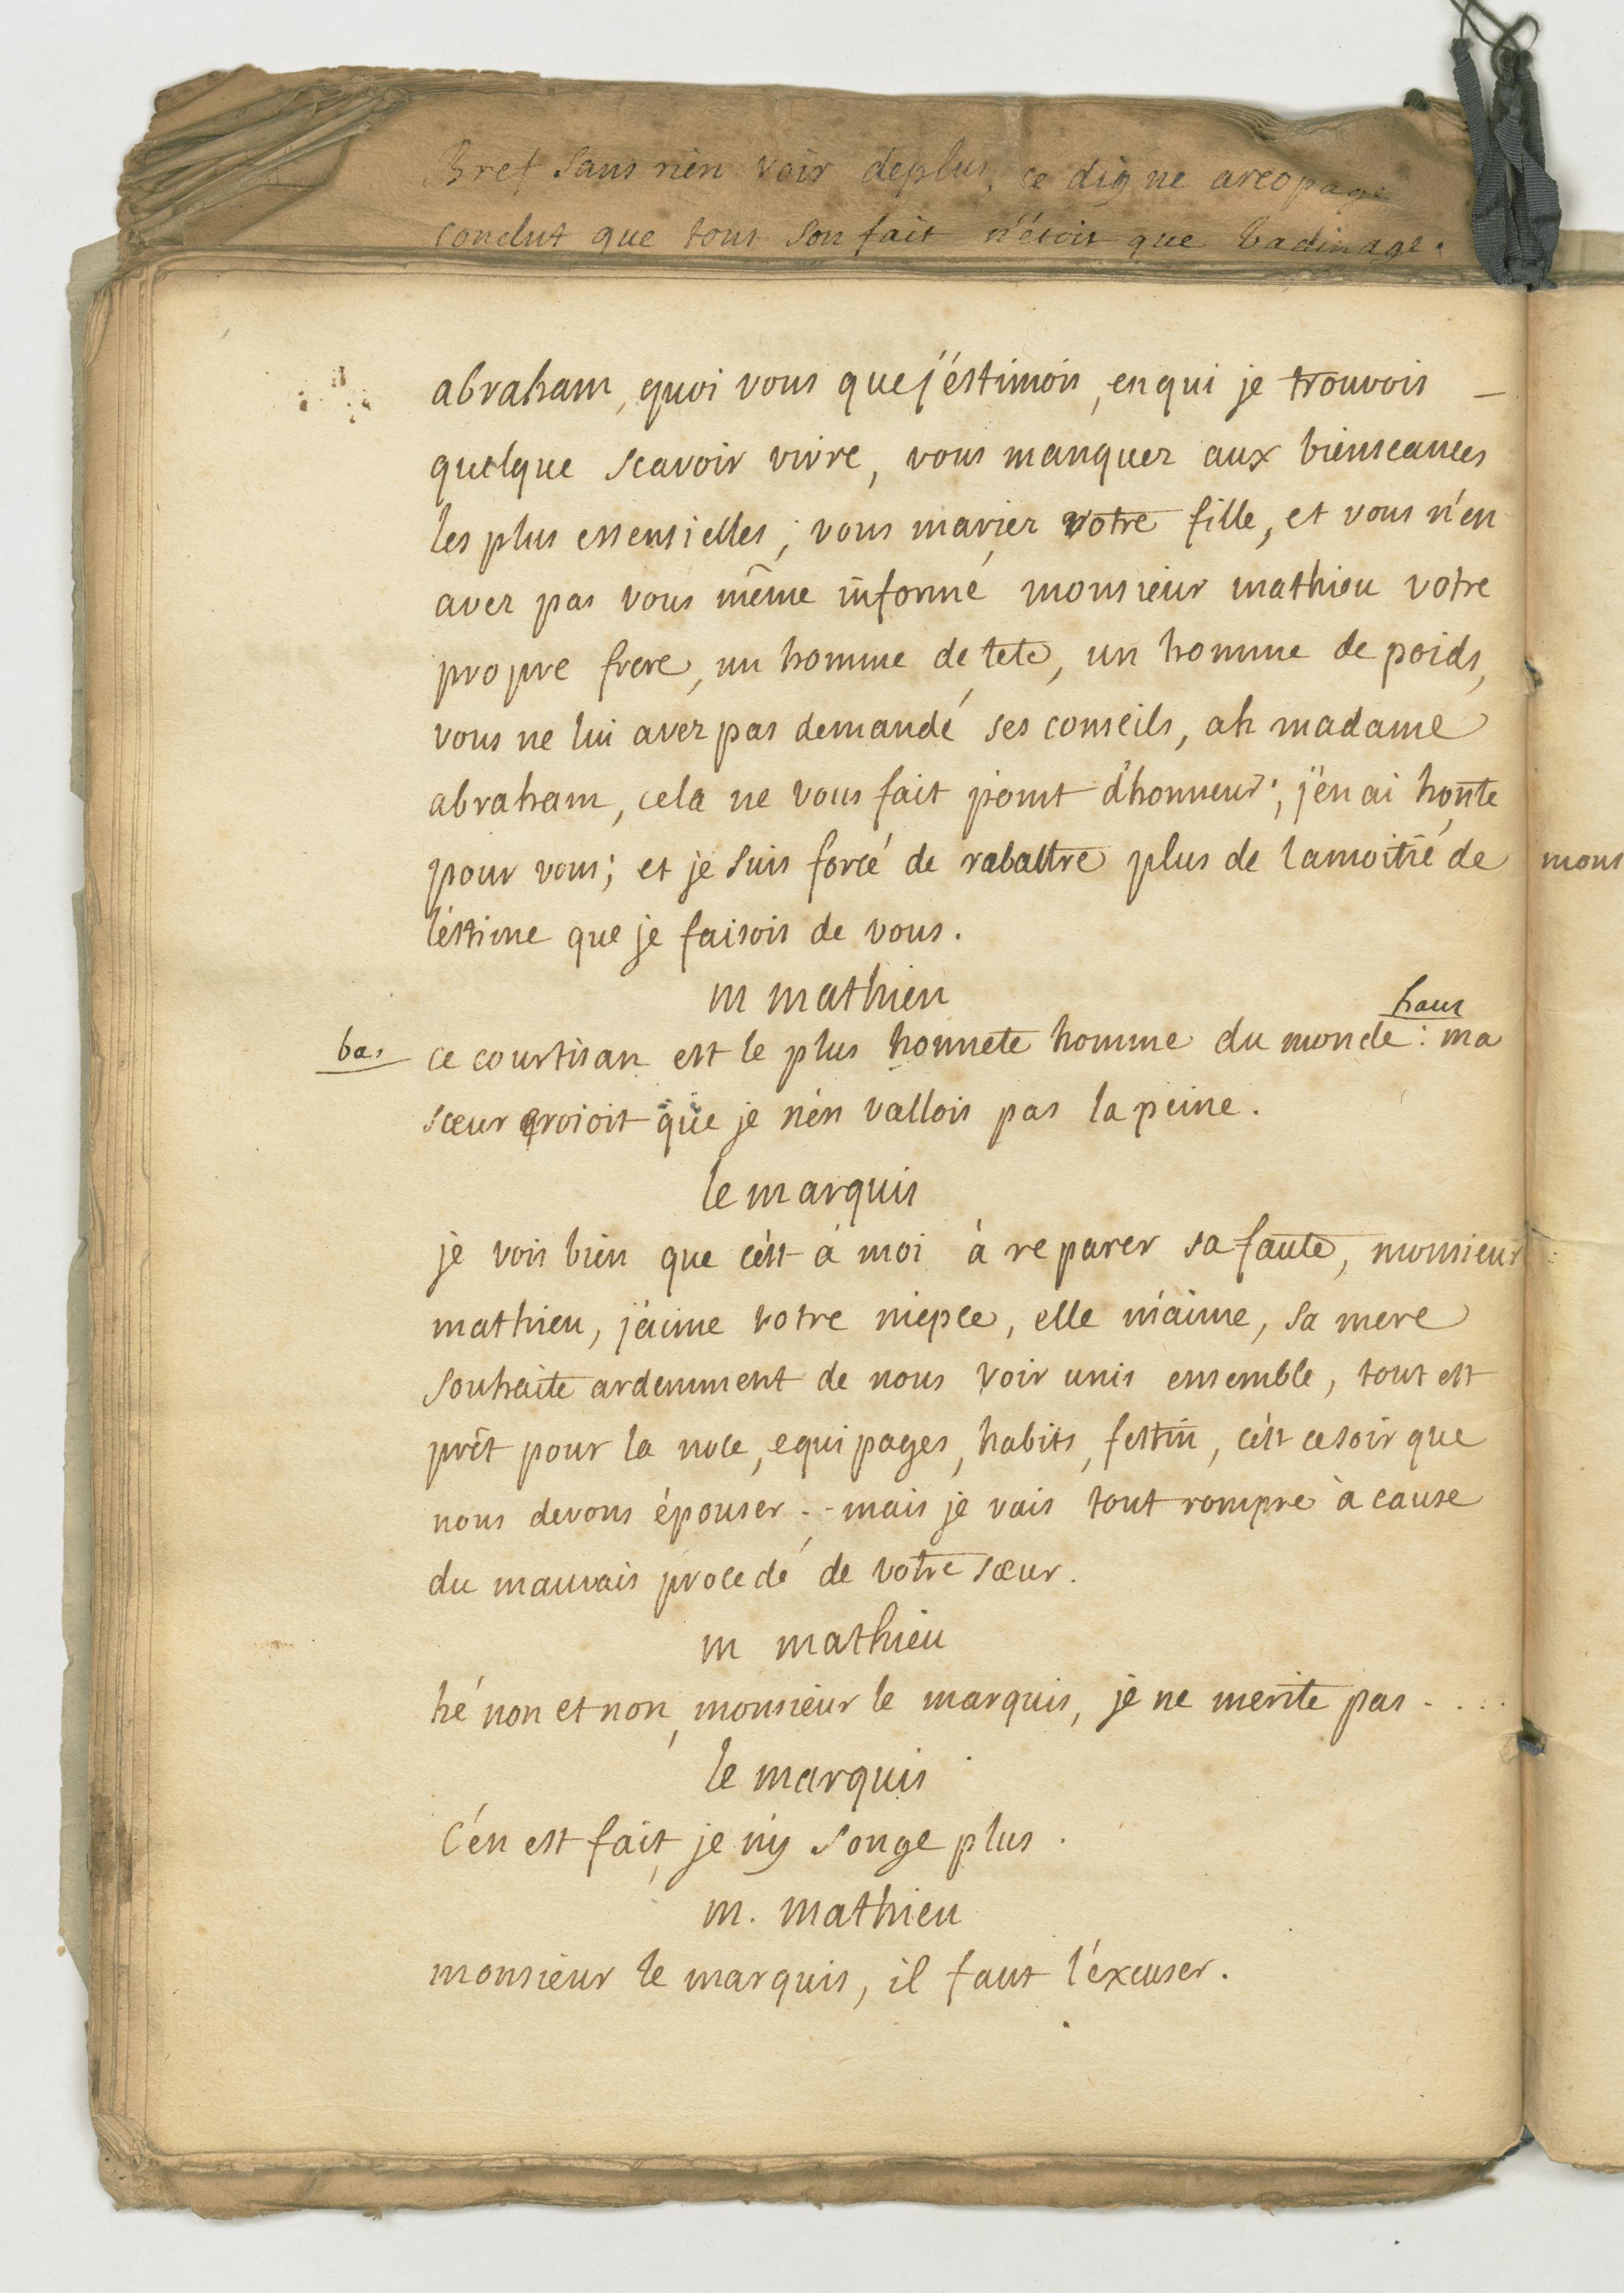 Bref sans rien voir deplus, ce digne areopage
conclut que tout son fait n'étoit que badinage.
abraham, quoi vous que j'éstimois, en qui je trouvois –
quelque scavoir vivre, vous manquer aux bienseances
les plus essensielles, vous marier votre fille, et vous n'en
avez pas vous même informé monsieur mathieu votre
propre frere, un homme de tete, un homme de poids,
vous ne lui avez pas demandé ses conseils, ah madame
abraham, cela ne vous fait point d'honneur; j'en ai honte
pour vous; et je suis forcé de rabattre plus de lamoitié de
l'éstime que je faisois de vous.
m mathieu
haut
bas ce courtisan est le plus honnete homme du monde: ma
sœur croioit que je n'en vallois pas la peine.
le marquis
je vois bien que c'est à moi à reparer sa faute, monsieur
mathieu, j'aime votre niepce, elle m'aime, sa mere
souhaite ardemment de nous voir unis ensemble, tout est
prêt pour la noce, equipages, habits, festin, c'est cesoir que
nous devons épouser .. mais je vais tout rompre à cause
du mauvais procedé de votre sœur.
m mathieu
hé non et non, monsieur le marquis, je ne merite pas ....
le marquis
C'en est fait, je n'y songe plus.
m. mathieu
monsieur le marquis, il faut l'éxcuser.
mons